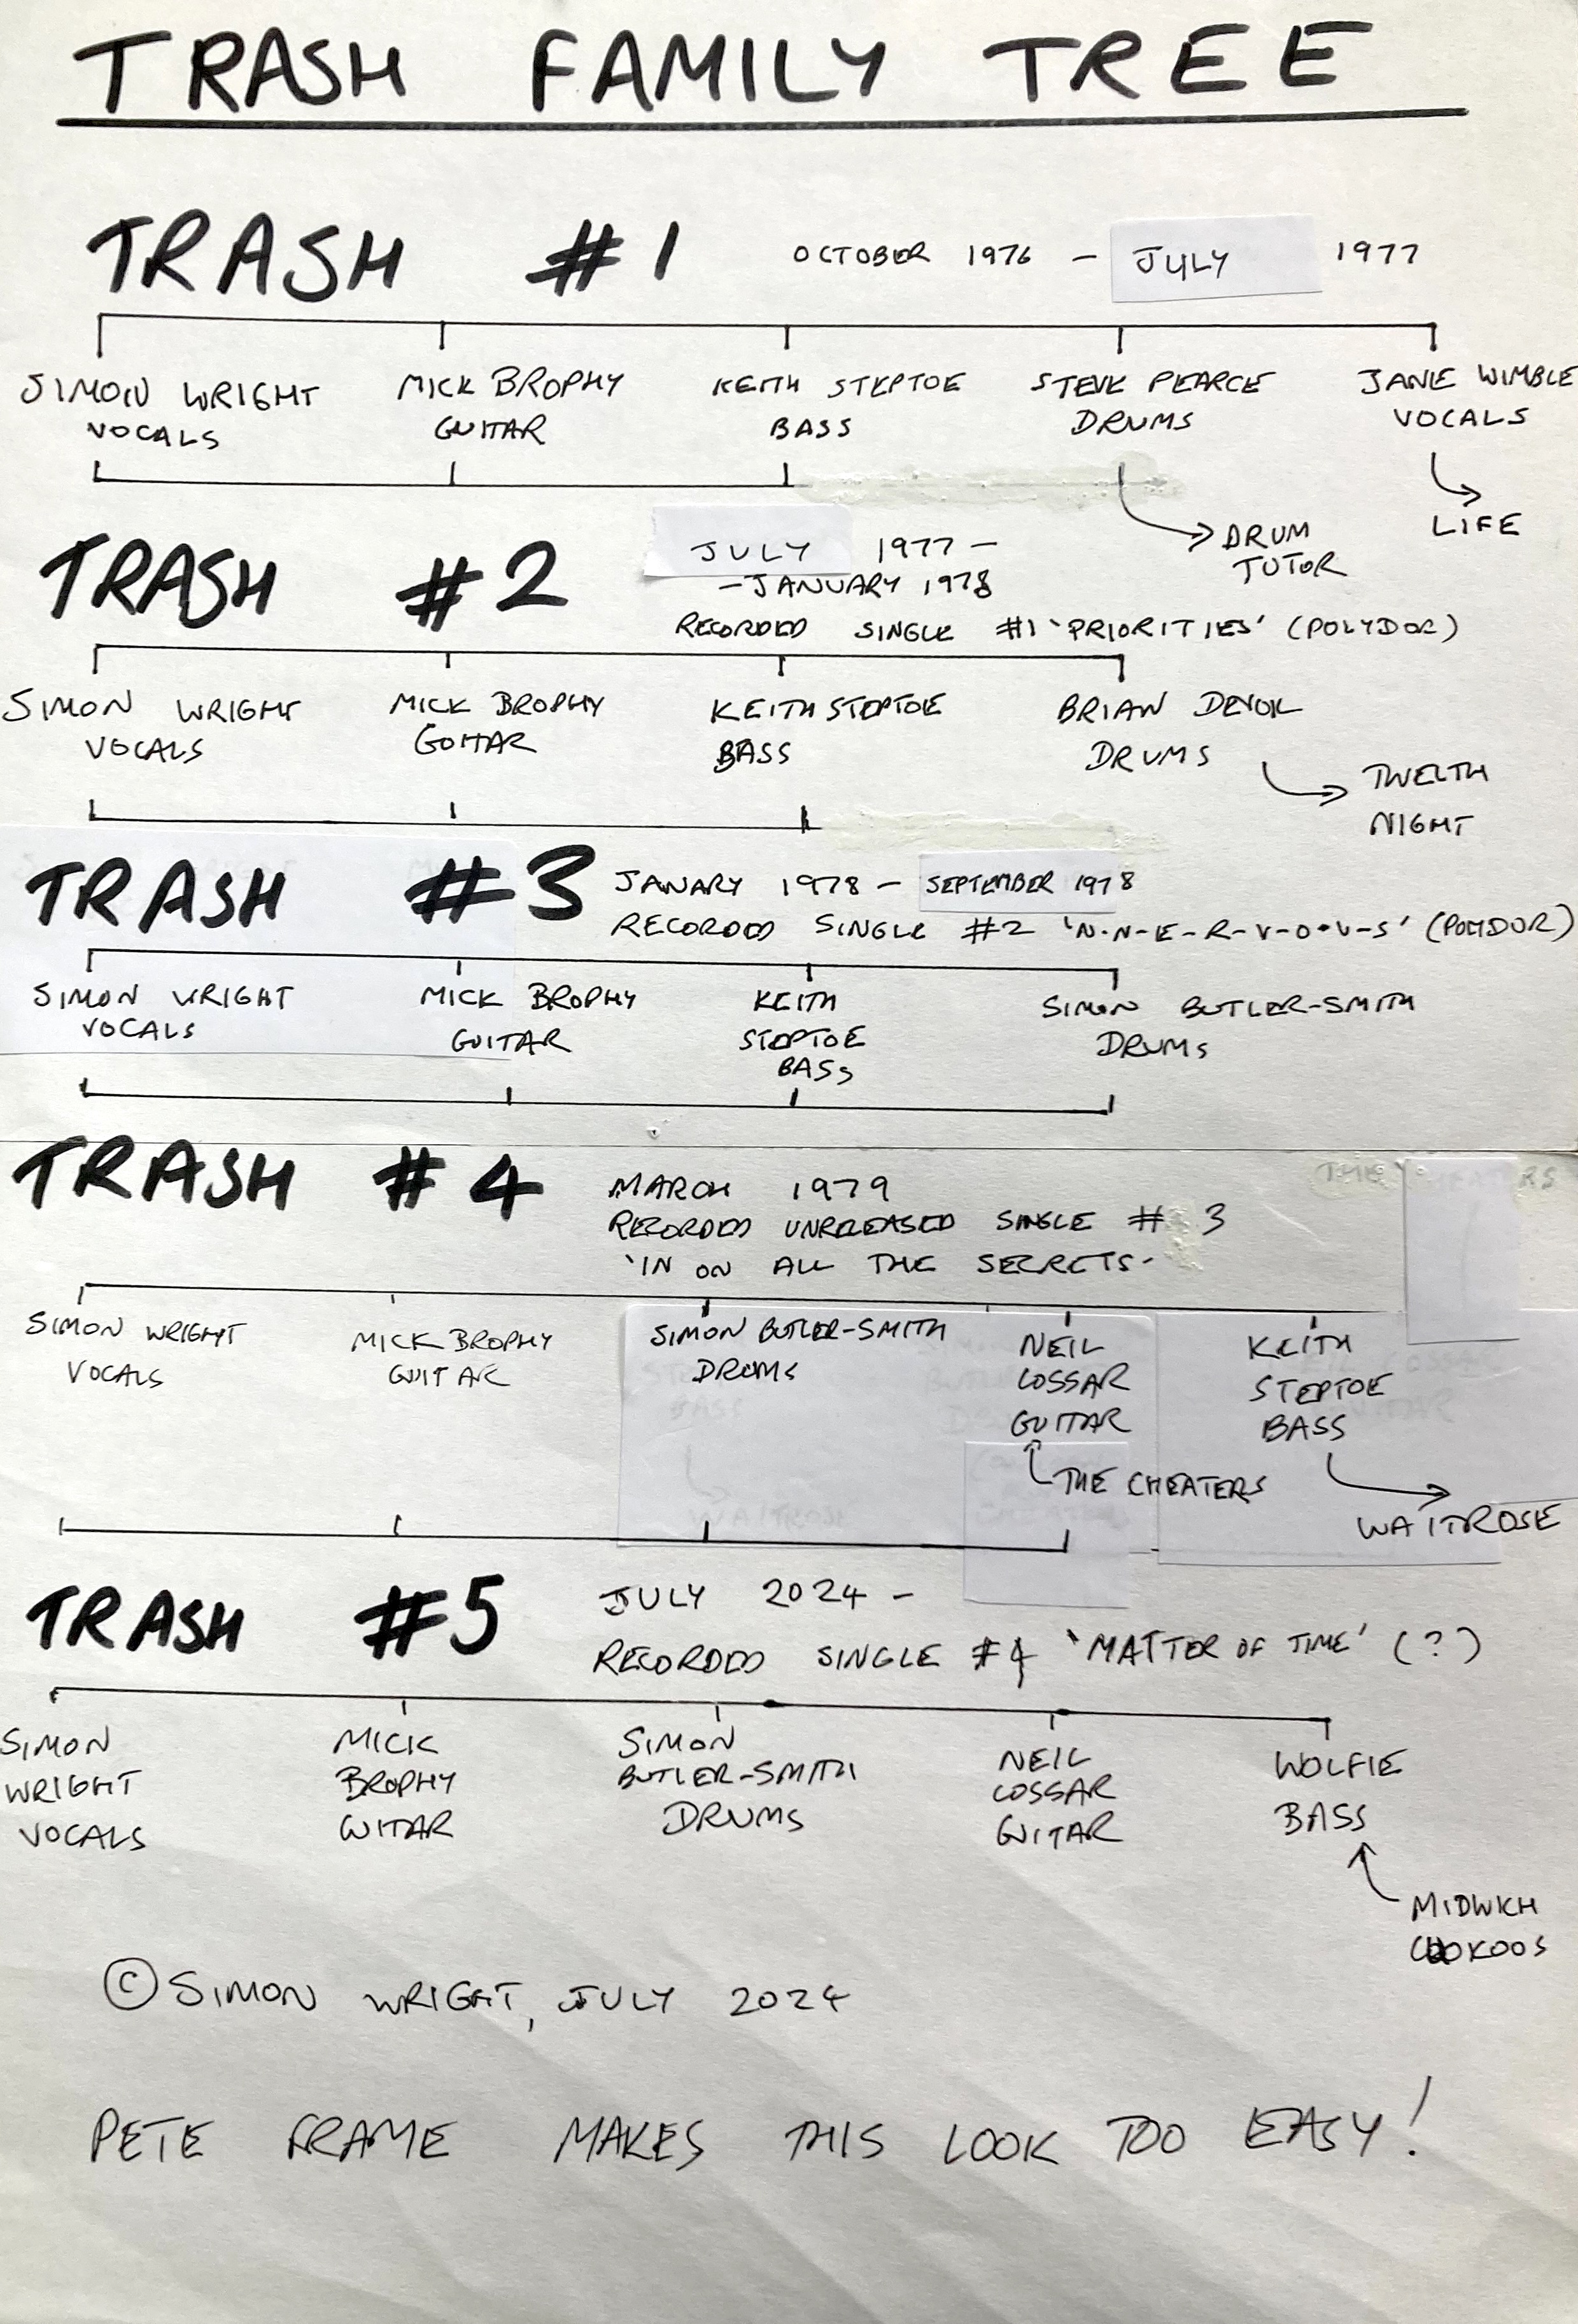 TRASH FAMILY TREE
TRASH #1 OCTOBER 1976 - JULY 1977
SIMON WRIGHT MICK BROPHY KEITH STEPTOE STEVE PEARCE JANE WIMBLE
VOCALS GUITAR BASS DRUMS VOCALS
DRUM TUTOR
LIFE
TRASH #2 JULY 1977 -
- JANUARY 1978
RECORDED SINGLE #1 'PRIORITIES' (POLYDOR)
SIMON WRIGHT MICK BROPHY KEITH STEPTOE BRIAN DEVOIL
VOCALS GUITAR BASS DRUMS
TWELTH
NIGHT
TRASH #3 JANARY 1978 - SEPTEMBER 1978
RECORDED SINGLE #2 'N-N-E-R-V-O-U-S' (POLYDOR)
SIMON WRIGHT MICK BROPHY KEITH SIMON BUTLER-SMITH
VOCALS GUITAR STEPTOE DRUMS
BASS
TRASH #4 MARCH 1979
RECORDED UNRELEASED SINGLE # 3
'IN ON ALL THE SECRETS-
SIMON WRIGHT MICK BROPHY SIMON BUTLER-SMITH NEIL KEITH
VOCALS GUITAR DRUMS COSSAR STEPTOE
GUITAR BASS
THE CHEATERS
WAITROSE
TRASH #5 JULY 2024 -
RECORDED SINGLE #4 'MATTER OF TIME' (?)
SIMON MICK SIMON NEIL WOLFIE
WRIGHT BROPHY BUTLER-SMITH COSSAR BASS
VOCALS GUITAR DRUMS GUITAR
MIDWICH
CUOKOOS
© SIMON WRIGHT, JULY 2024
PETE FRAME MAKES THIS LOOK TOO EASY!